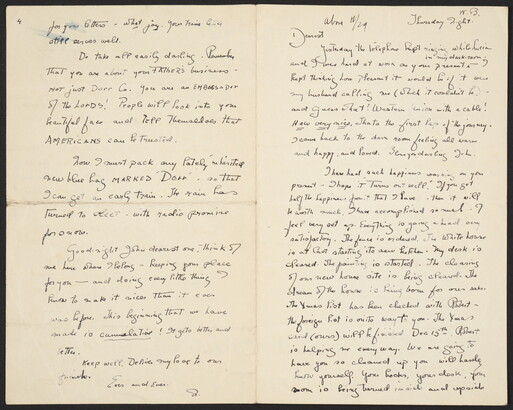 4
for your letters - what joy. Your train line
still serves well.
Do take all easily darling. Remember
that you are about your FATHER'S business -
not just Dorr Co. You are an EMBASSADOR
of the LORD'S! People will look into your
beautiful face and tell themselves that
AMERICANS can be trusted.
Now I must pack my lately inherited
new blue bag MARKED "DORR" - so that
I can get an early train. The rain has
turned to sleet - with radio promise
for snow.
Goodnight John dearest one, think of
me here where I belong - keeping your place
for you - and doing every little thing I
know to make it nicer than it ever
was before. This beginning that we have
made is cumulative! It gets better and
better.
Keep well. Deliver my love to our
friends.
Ever and Ever.
Nov 11/29 Thursday Night.
Dearest
Yesterday the telephone kept ringing while I was
in my dark room
and I was hard at work on your present -
Kept thinking how pleasant it would be if it were
my husband calling me (which it couldn't be) -
and guess what! Western Union with a cable!
How very nice, thats the first lap of the journey.
I came back to the dark room feeling all warm
and happy, and loved. Thank you darling John
I have had such happiness working on your
present - I hope it turns out well. If you get
half the happiness from it that I have - then it will
be worth much. I have accomplished so much - I
feel very set up. Everything is going ahead and
satisfactory. The fence is ordered. The White house
is at last starting its new kitchen. My desk is
cleared. The painting is started. The clearing
of our new house site is being cleared. The
dream of the house is being born for our use.
The Xmas list has been checked with Robert -
the foreign list is on its way to you. The Xmas
card (ours) will be finished Dec 15th. Robert
is helping me every way. We are going to
have you so cleaned up you will hardly
know yourself. Your books, your desk, your
room is being turned inside and upside